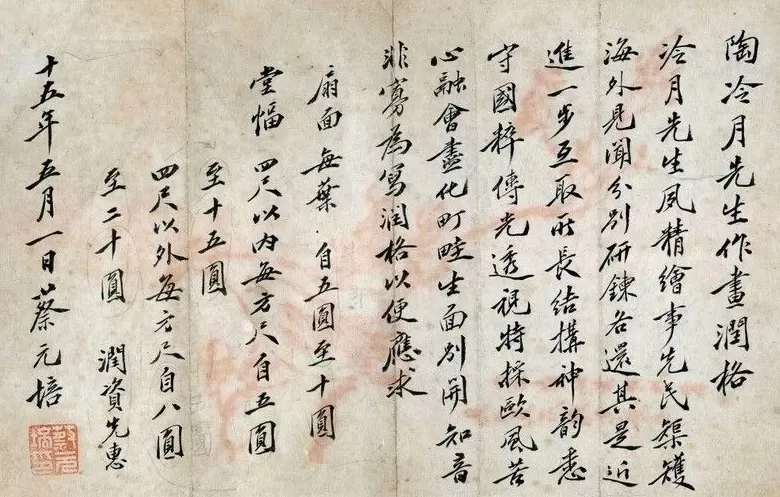 陶冷月先生作畫潤格
冷月先生夙精繪事先民榘矱
海外見聞分別研鍊各還其是近
進一步互取所長結搆神韻悉
守國粹傳光透視特採歐風苦
心融會盡化町畦生面別開知音
非寡為寫潤格以便應求
扇面每葉 自五圓至十圓
堂幅 四尺以內每方尺自五圓
至十五圓
四尺以外每方尺自八圓
至二十圓 潤資先惠
十五年五月一日蔡元培
蔡元培印